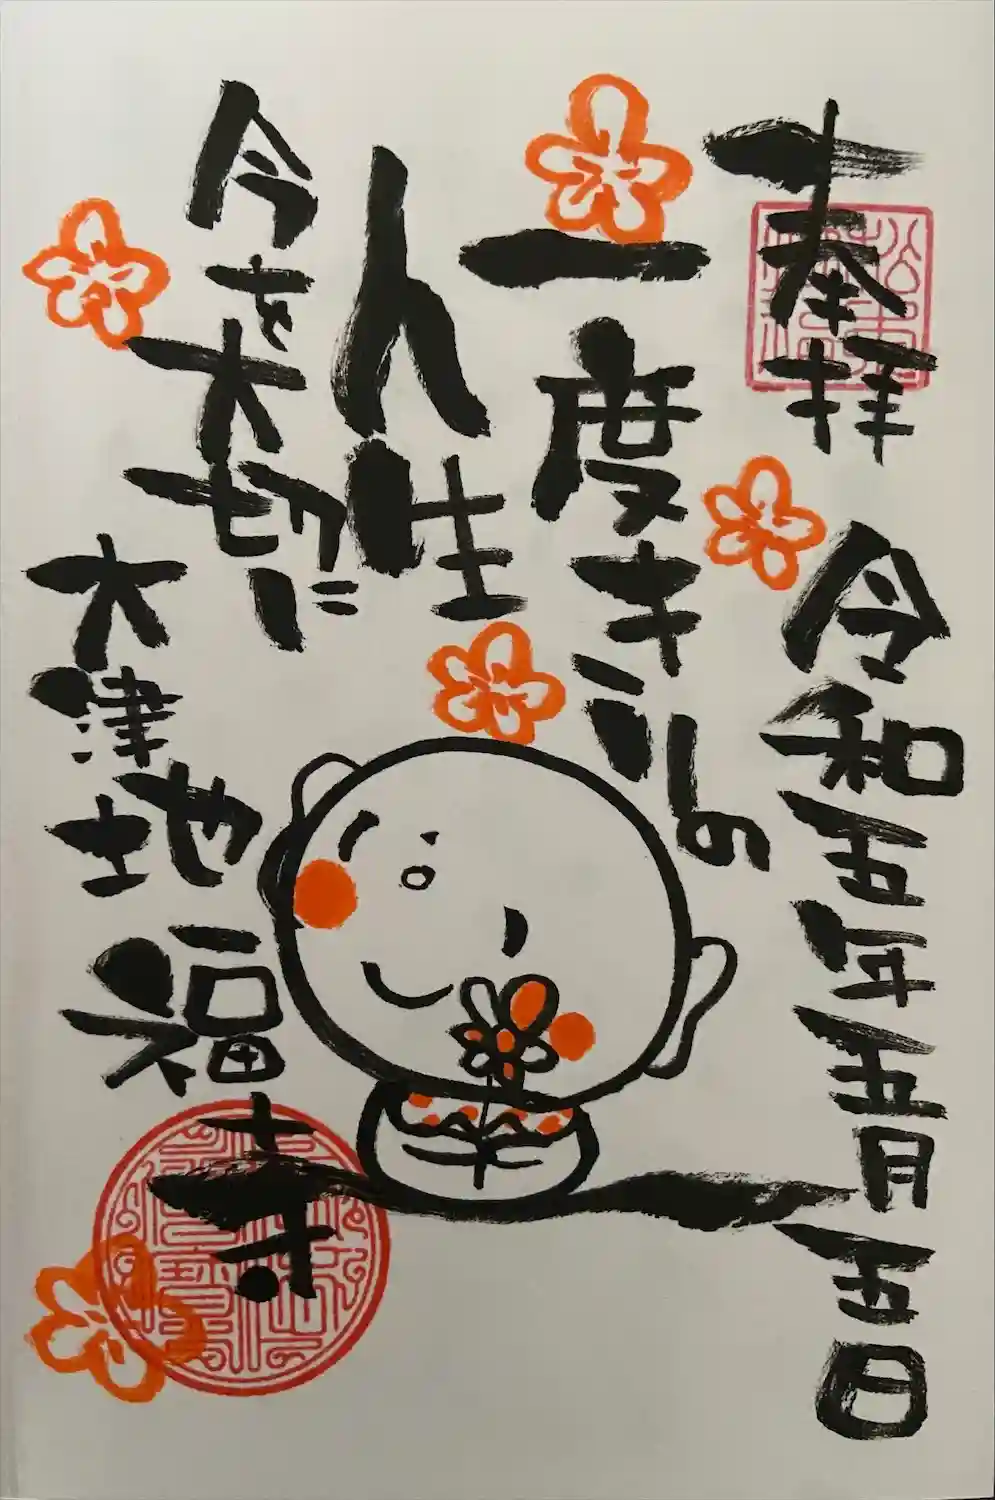 奉拝
令和五年五月五日
一度キリの
人生
今を大切に
大津地福寺